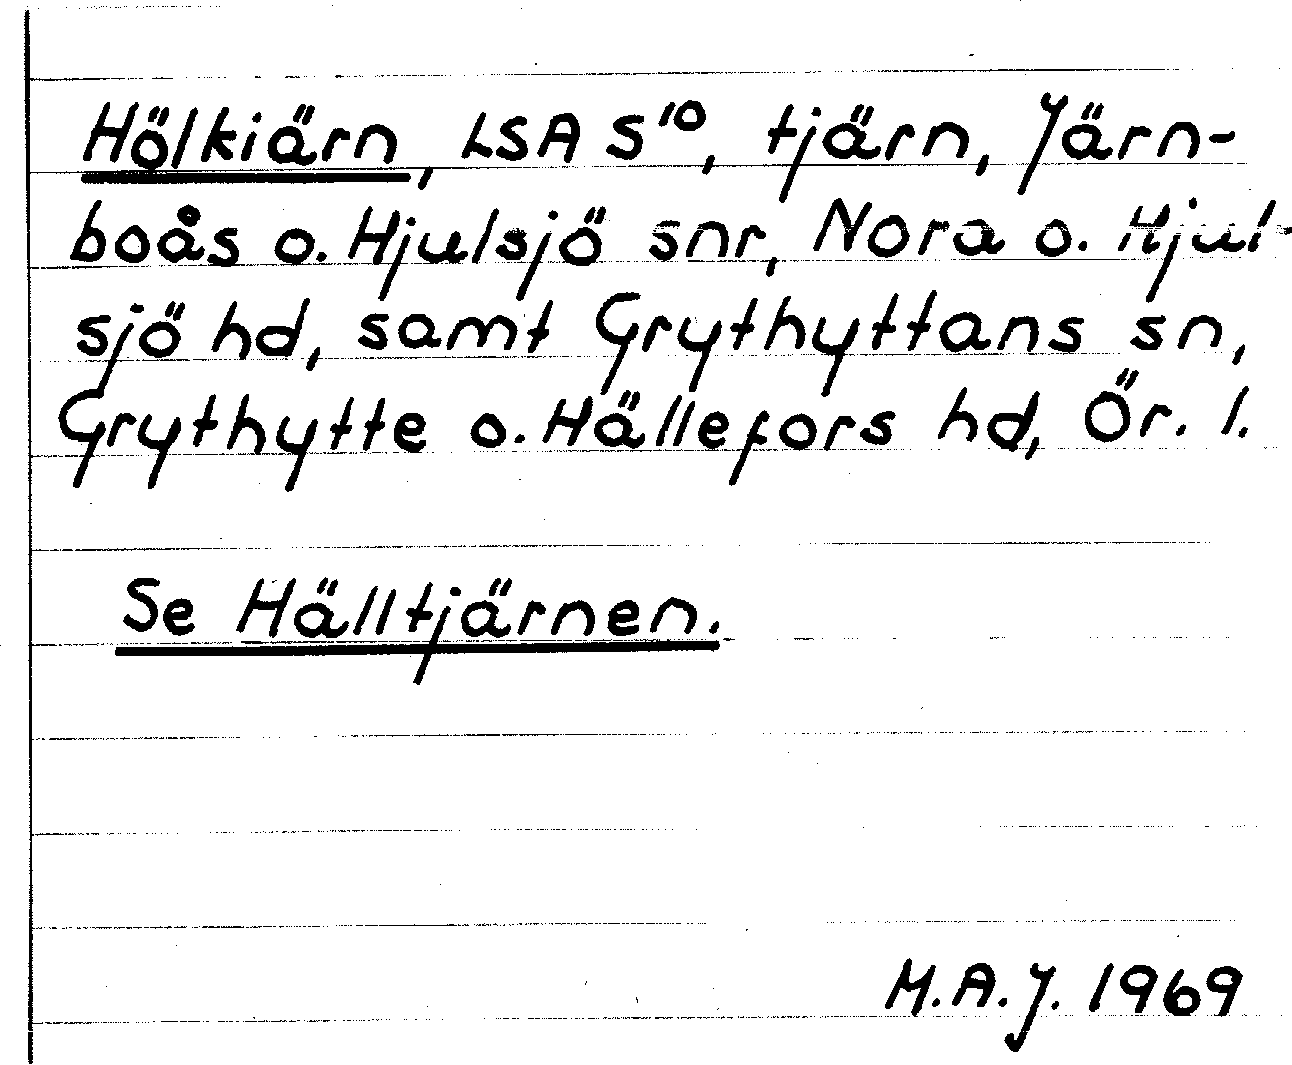 Hölkiärn, LSA S¹⁰, tjärn, Järn-
boås o. Hjulsjö snr, Nora o. Hjul-
sjö hd, samt Grythyttans sn,
Grythytte o. Hällefors hd, Ör. l.
Se Hälltjärnen.
M.A.J. 1969